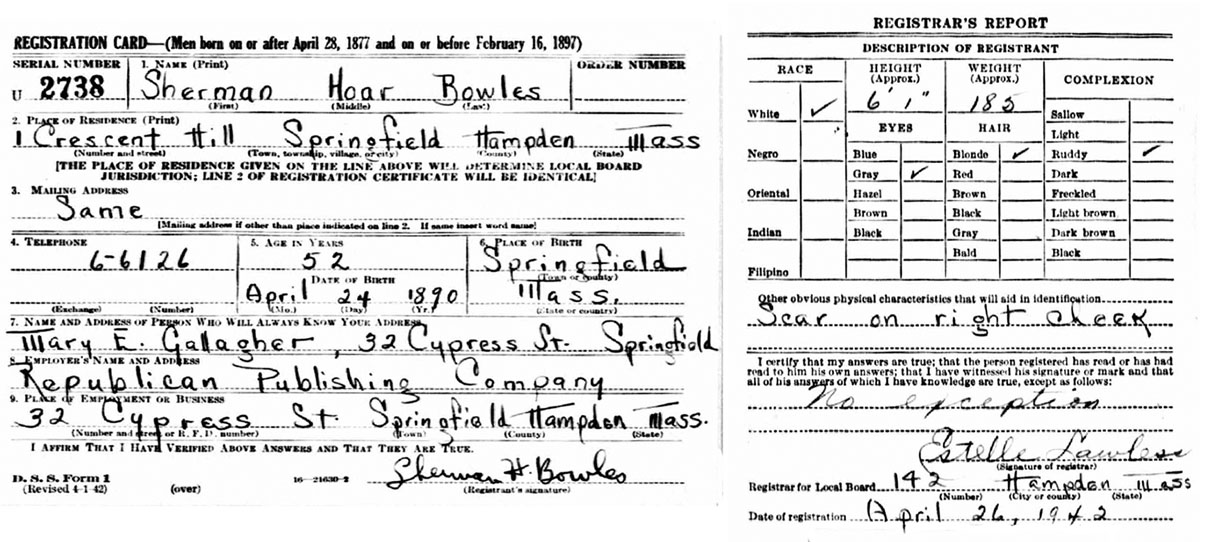 REGISTRATION CARD—(Men born on or after April 28, 1877 and on or before February 16, 1897)
SERIAL NUMBER 1. NAME (Print) ORDER NUMBER
U 2738 Sherman Hoar Bowles
(First) (Middle) (Last)
2. PLACE OF RESIDENCE (Print)
1 Crescent Hill Springfield Hampden Mass
(Number and street) (Town, township, village, or city) (County) (State)
[THE PLACE OF RESIDENCE GIVEN ON THE LINE ABOVE WILL DETERMINE LOCAL BOARD
JURISDICTION; LINE 2 OF REGISTRATION CERTIFICATE WILL BE IDENTICAL]
3. MAILING ADDRESS
Same
[Mailing address if other than place indicated on line 2. If same insert word same]
4. TELEPHONE 5. AGE IN YEARS 6. PLACE OF BIRTH
6-6126 52 Springfield
DATE OF BIRTH (Town or county)
April 24 1890 Mass.
(Exchange) (Number) (Mo.) (Day) (Yr.) (State or country)
7. NAME AND ADDRESS OF PERSON WHO WILL ALWAYS KNOW YOUR ADDRESS
Mary E. Gallagher, 32 Cypress St. Springfield
8. EMPLOYER'S NAME AND ADDRESS
Republican Publishing Company
9. PLACE OF EMPLOYMENT OR BUSINESS
32 Cypress St Springfield Hampden Mass.
(Number and street or R. F. D. number) (Town) (County) (State)
I AFFIRM THAT I HAVE VERIFIED ABOVE ANSWERS AND THAT THEY ARE TRUE.
Sherman H. Bowles
D. S. S. Form 1
(Revised 4-1-42) (over) 16—21630-2 (Registrant's signature)
REGISTRAR'S REPORT
DESCRIPTION OF REGISTRANT
RACE HEIGHT (Approx.) WEIGHT (Approx.) COMPLEXION
6' 1" 185
White ✓ Sallow
EYES HAIR Light
Negro Blue Blonde ✓ Ruddy ✓
Gray ✓ Red Dark
Oriental Hazel Brown Freckled
Brown Black Light brown
Indian Black Gray Dark brown
Bald Black
Filipino
Other obvious physical characteristics that will aid in identification
Scar on right cheek
I certify that my answers are true; that the person registered has read or has had
read to him his own answers; that I have witnessed his signature or mark and that
all of his answers of which I have knowledge are true, except as follows:
No exception
Estelle Lawless
(Signature of registrar)
Registrar for Local Board 142 Hampden Mass
(Number) (City or county) (State)
Date of registration April 26, 1942